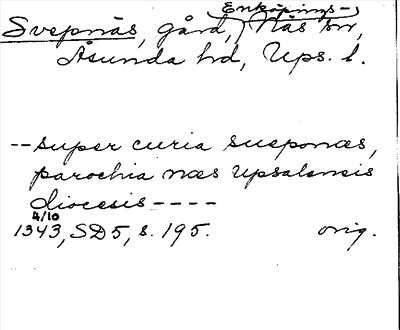 Enköpings-
Svepnäs, gård, Näs sn,
Åsunda hd, Ups. l.
-- super curia sueponæs,
parochia næs Upsalensis
diocesis ----
4/10
1343, SD5, s. 195. orig.